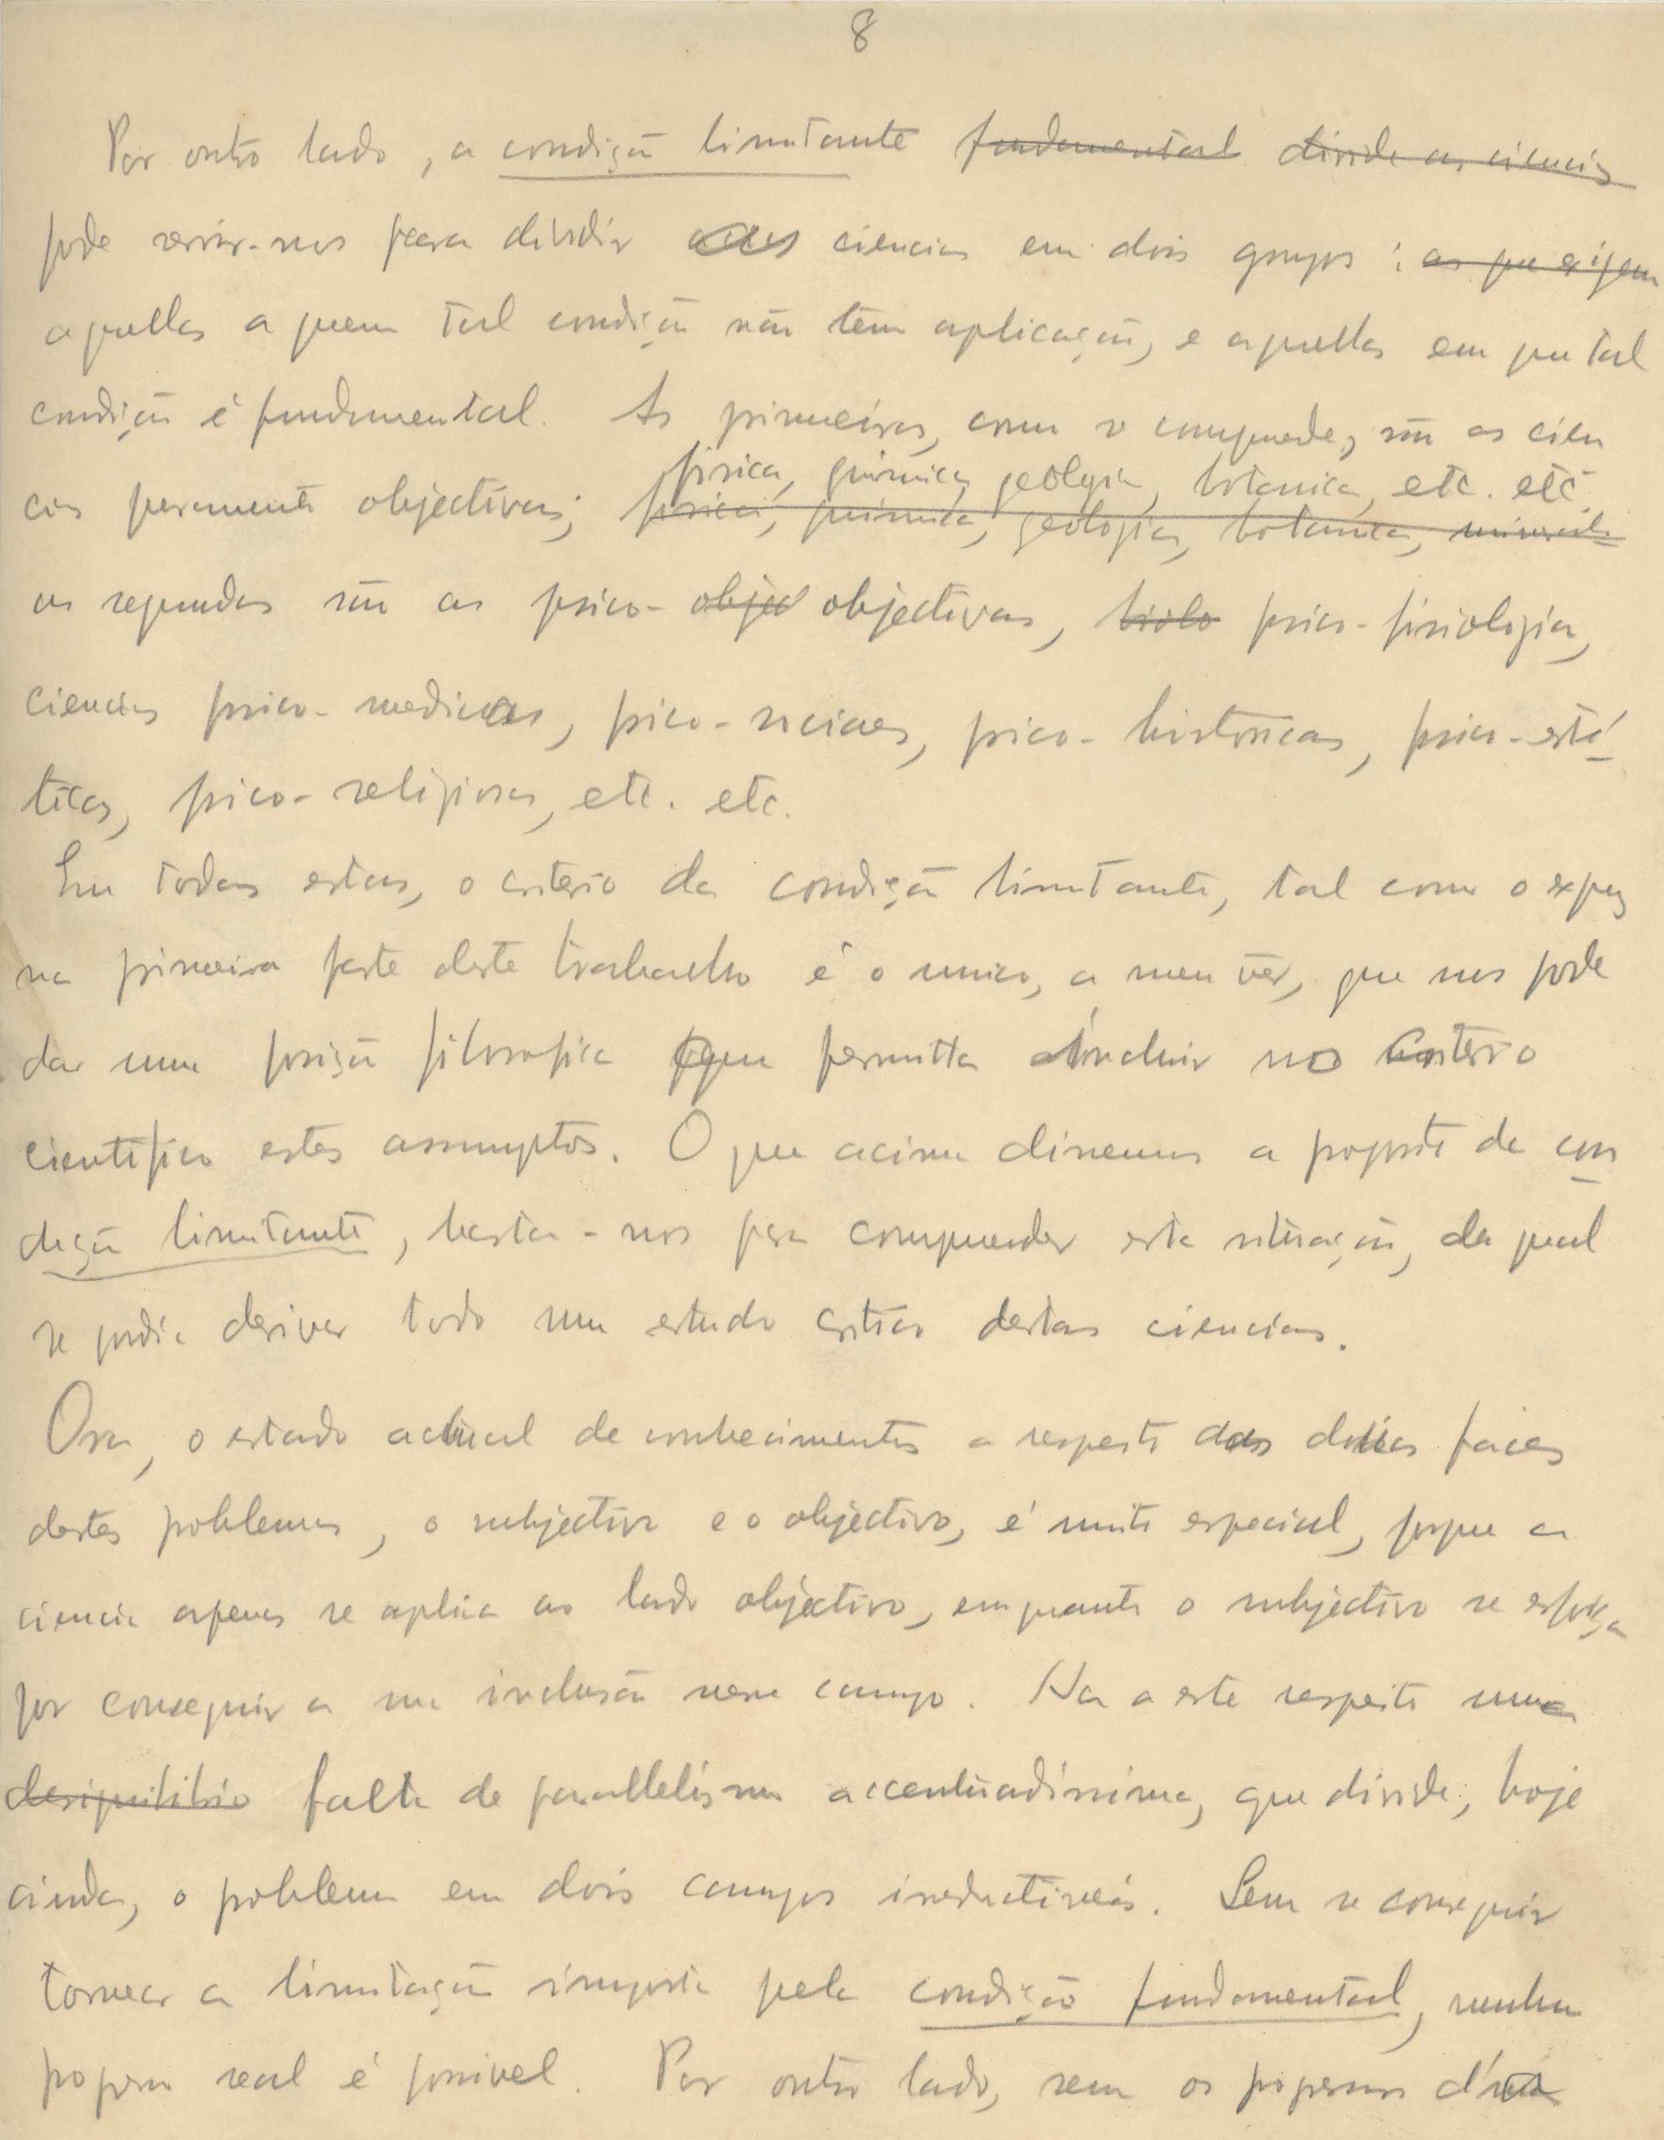 8
Por outro lado, a condição limitante fundamental divide as ciencias
pode servir-nos para dividir as ciencias em dois grupos: as que exigem
aquellas a quem tal condição não tem aplicação, e aquellas em que tal
condição é fundamental. As primeiras, como se comprende, são as cien
cias puramente objectivas; física, química, geologia, botanica, etc. etc.
física, química, geologia, botanica,
as segundas são as psico-objec objectivas, biolo psico-fisiologia,
ciencias psico-medicas, psico-sociaes, psico-historicas, psico-esté
ticas, psico-religiosas, etc. etc.
Em todas estas, o criterio da condição limitante, tal como o expuz
na primeira parte deste trabalho é o unico, a meu vêr, que nos pode
dar uma posição filosofica que permitta incluir no criterio
cientifico estes assumptos. O que acima dissemos a proposito de con
dição limitante, basta-nos para comprender esta situação, da qual
se podia derivar todo um estudo critico destas ciencias.
Ora, o estado actual de conhecimentos a respeito das duas faces
destes problemas, o subjectivo e o objectivo, é muito especial, porque a
ciencia apenas se aplica ao lado objectivo, emquanto o subjectivo se esforça
por conseguir a sua inclusão nesse campo. Ha a este respeito uma
desiquilibrio falta de parallelismo accentuadissima, que divide, hoje
ainda, o problema em dois campos irreductiveis. Sem se conseguir
tornear a limitação imposta pela condição fundamental, nenhum
progresso real é possivel. Por outro lado, sem os progressos